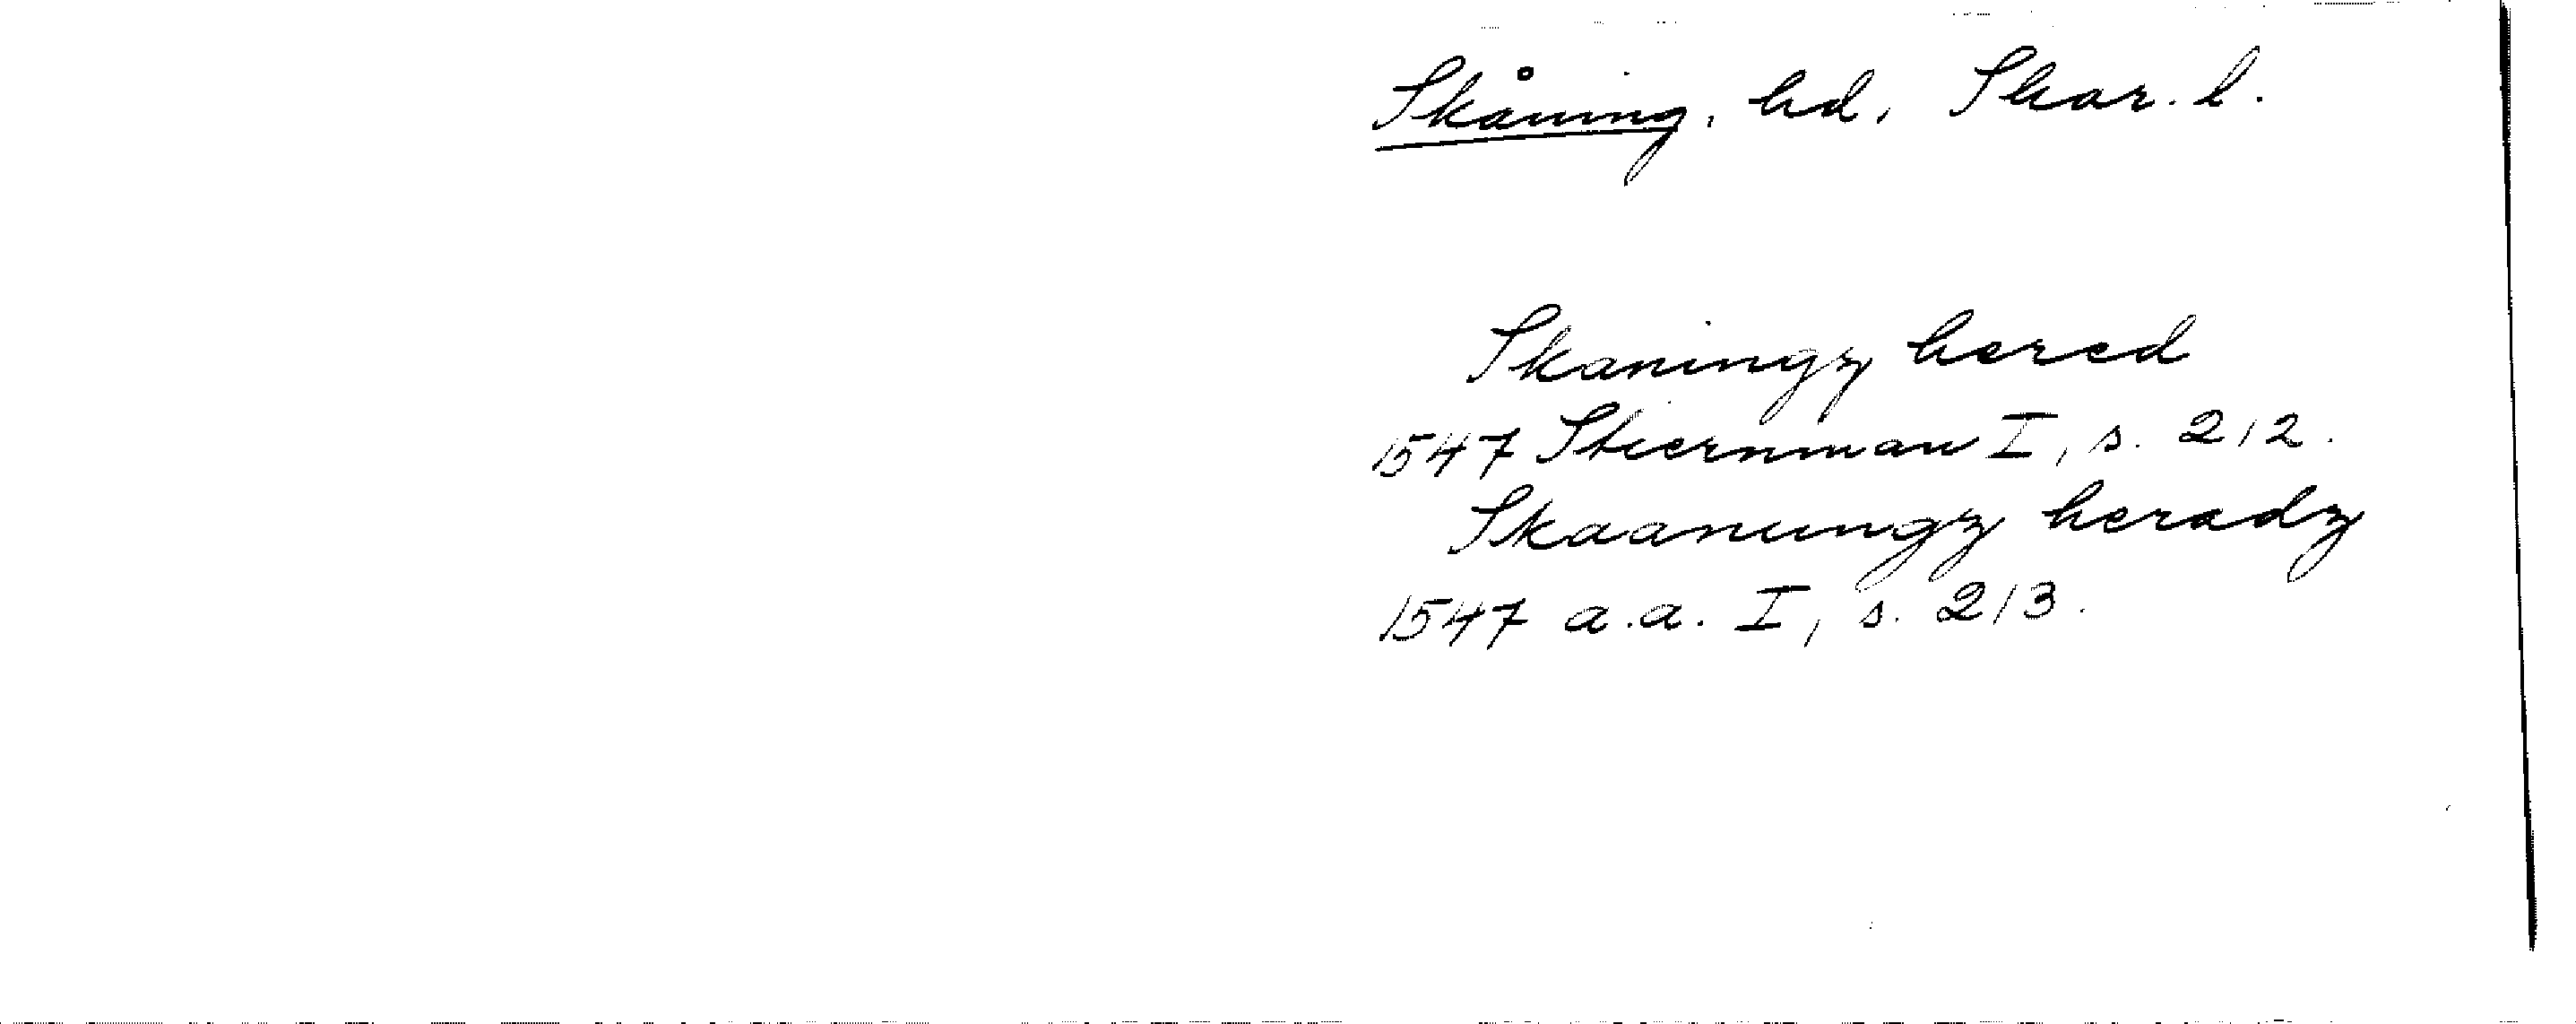 Skåning, hd, Skar. l.
Skaningz hered
1547 Stiernman I, s. 212.
Skaanungz heradz
1547 a.a. I, s. 213.